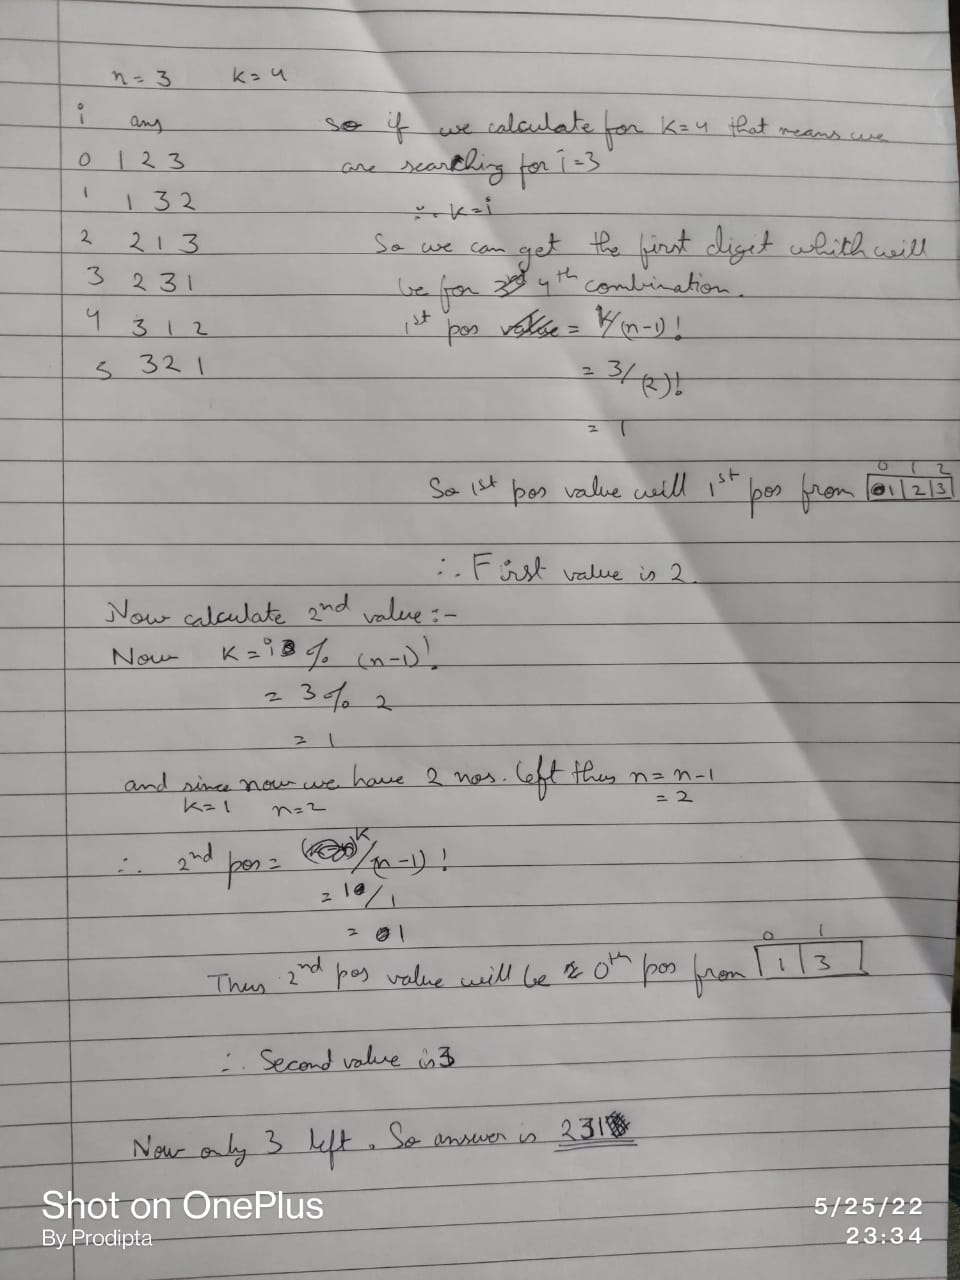 n = 3 k = 4
i ans
0 1 2 3
1 1 3 2
2 2 1 3
3 2 3 1
4 3 1 2
5 3 2 1
so if we calculate for K=4 that means we
are searching for i=3
∴ K=i
So we can get the first digit whith will
be for 4th combination.
1st pos value = K/(n-1)!
= 3/(2)!
= 1
0 1 2
So 1st pos value will 1st pos from 1|2|3
∴ First value is 2.
Now calculate 2nd value :-
Now K = i % (n-1)!
= 3 % 2
= 1
and since now we have 2 nos. left thus n = n-1
K=1 n=2 = 2
∴ 2nd pos = K/(n-1)!
= 1/1
= 1
0 1
Thus 2nd pos value will be 0th pos from 1|3
∴ Second value is 3
Now only 3 left. So answer is 231
Shot on OnePlus
By Prodipta
5/25/22
23:34